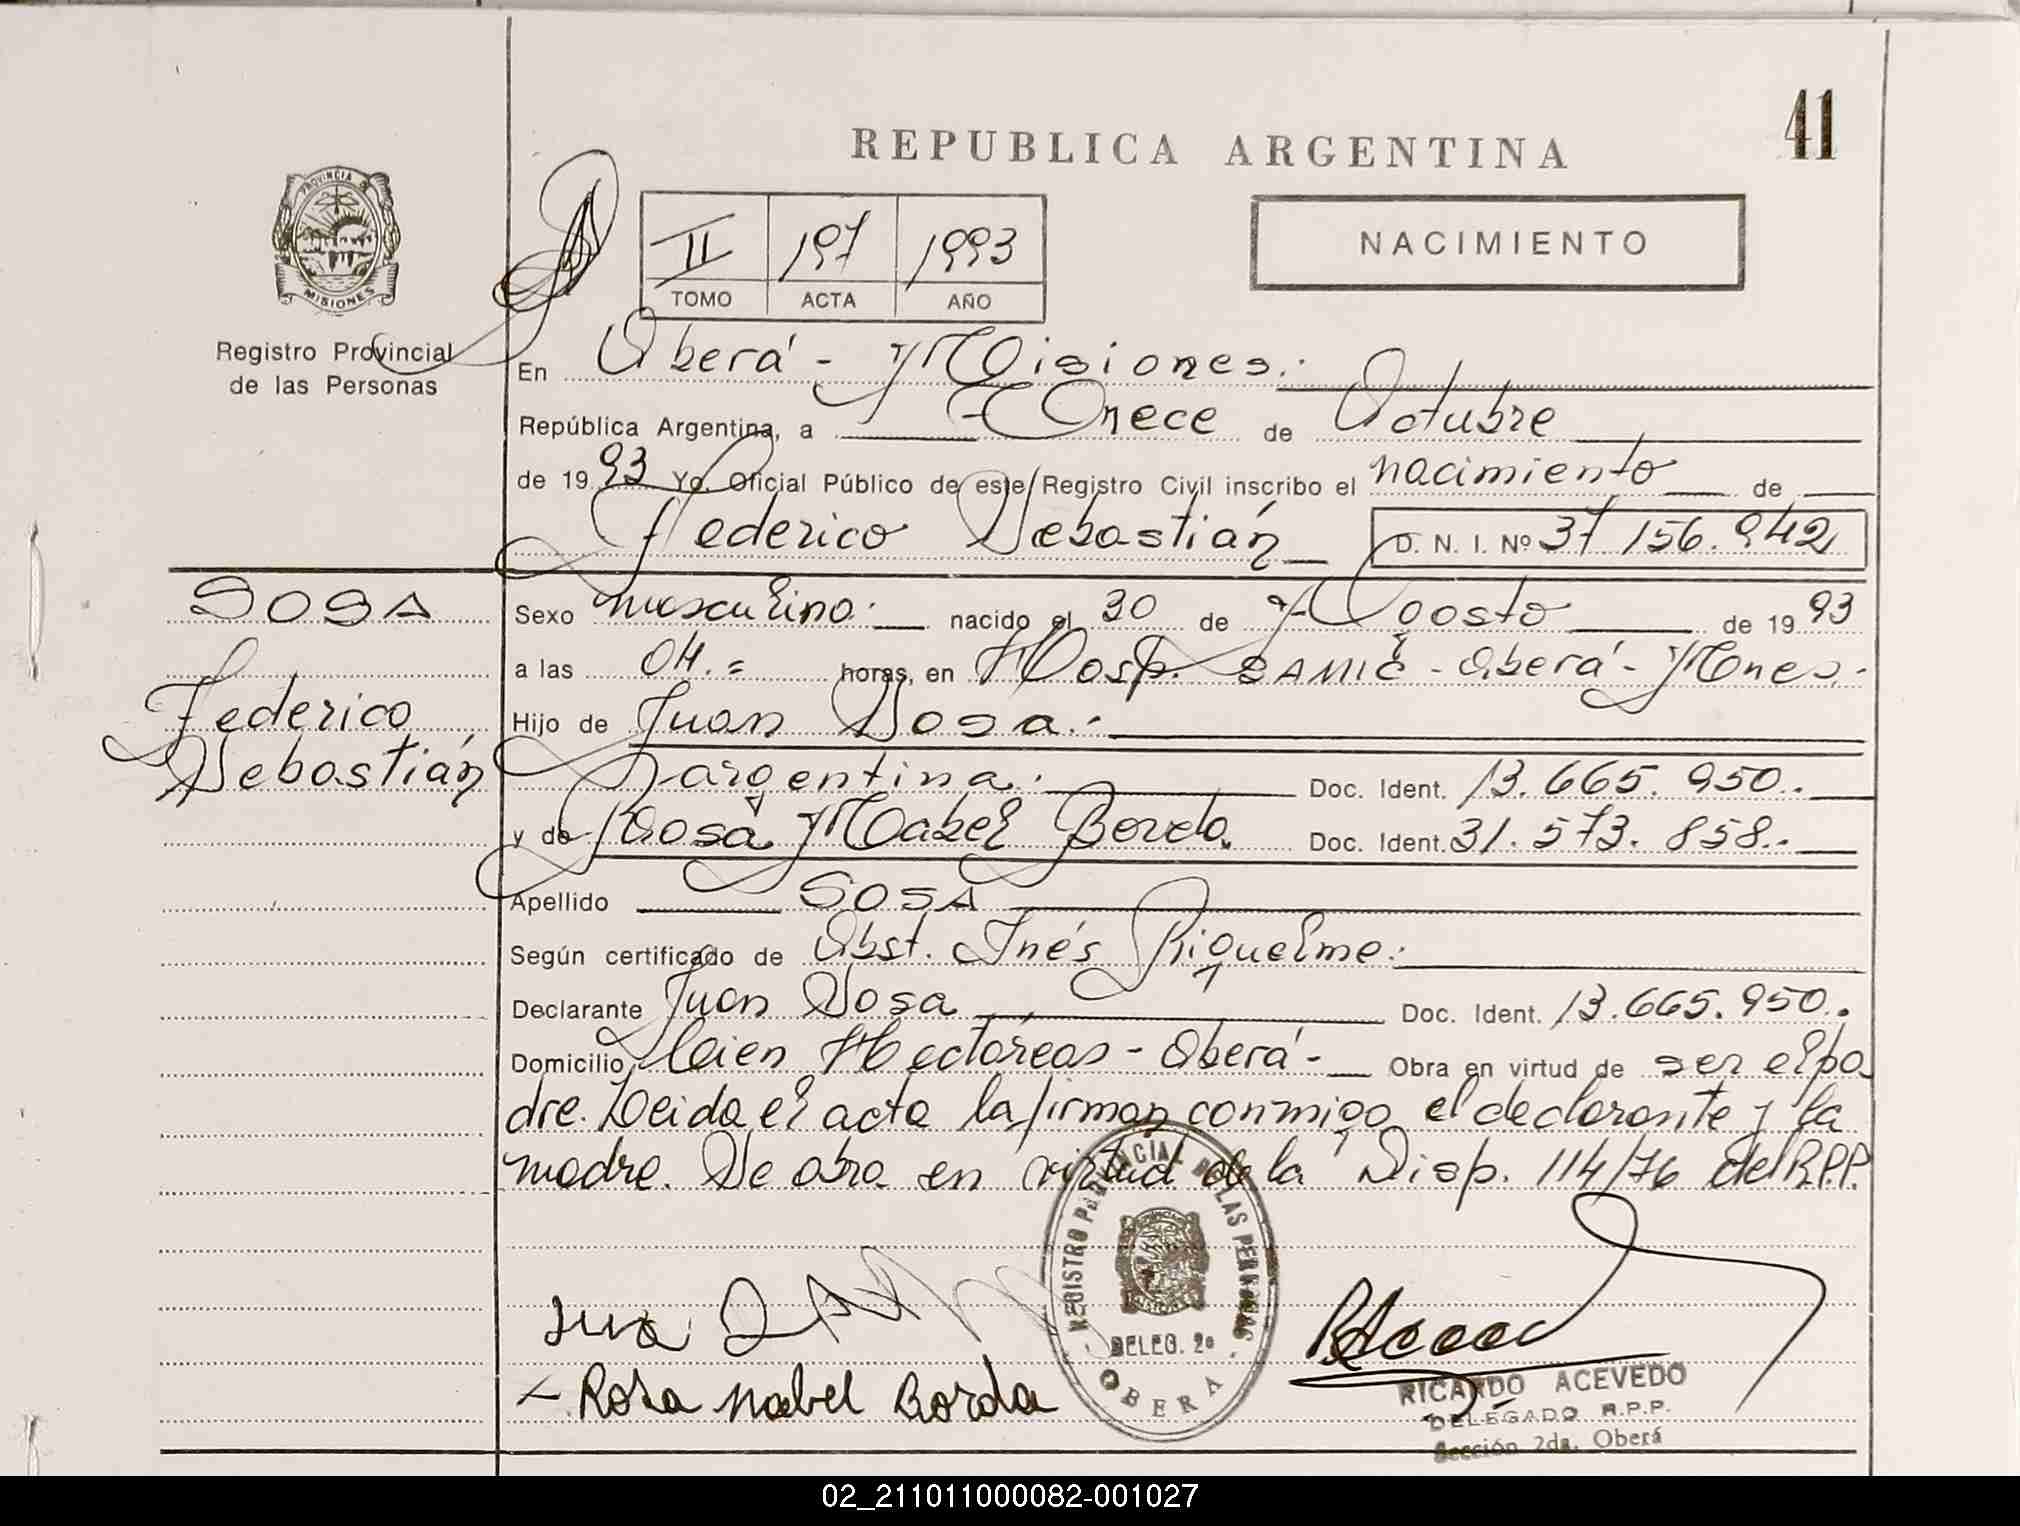 41
REPUBLICA ARGENTINA
PROVINCIA DE
MISIONES
Registro Provincial
de las Personas
II 197 1993
TOMO ACTA AÑO
NACIMIENTO
En Oberá - Misiones.
República Argentina, a Once de Octubre
de 1993 Yo, Oficial Público de este Registro Civil inscribo el nacimiento de
Federico Sebastián D. N. I. Nº 37 156.942
SOSA
Federico
Sebastián
Sexo masculino. nacido el 30 de Agosto de 1993
a las 04.= horas, en Hosp. SAMIC - Oberá - Mnes.
Hijo de Juan Sosa.
argentina. Doc. Ident. 13.665.950.
y de Rosa Mabel Borda. Doc. Ident. 31.573.858.
Apellido SOSA
Según certificado de Obst. Inés Riquelme.
Declarante Juan Sosa Doc. Ident. 13.665.950.
Domicilio Cien Hectáreas - Oberá - Obra en virtud de ser el pa
dre. Leida el acta la firman conmigo el declarante y la
madre. Se obra en virtud de la Disp. 114/76 del R.P.P.
REGISTRO PROVINCIAL DE LAS PERSONAS
DELEG. 2º
OBERA
Rosa Mabel Borda
RICARDO ACEVEDO
DELEGADO R.P.P.
Sección 2da. Oberá
02_211011000082-001027